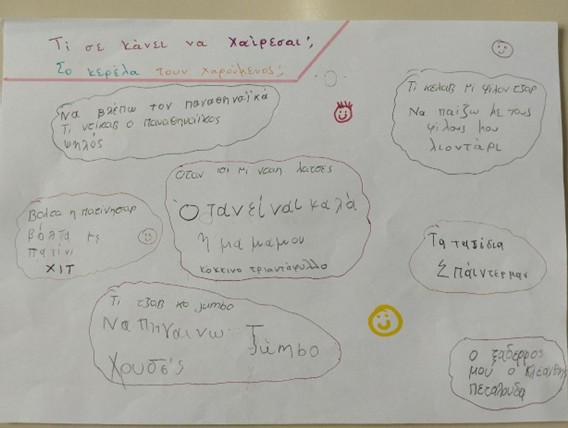 Τι σε κάνει να χαίρεσαι;
Σο κερέλα τουν χαρούμενος;
Να βλέπω τον παναθηναϊκά
Τι ντίκαβ ο παναθηναϊκος
ψηλός
Τι κελαβ μι φιλαντζαρ
Να παίζω με τους
φίλους μου
λιοντάρι
Όταν ισι μι νταη λατσές
Ο τανείναι καλά
η μαμαμου
κοκκινο τριαντάφυλλο
Βόλτα η πατινησαρ
βόλτα με
πατίνι
ΧΙΤ
Τα ταξίδια
Σπάιντερμαν
Τι τζαβ κο jumbo
Να πηγαινω Jumbo
Χουσέ's
ο ξαδερφος
μου ο Κλεάνθης
πεταλούδα